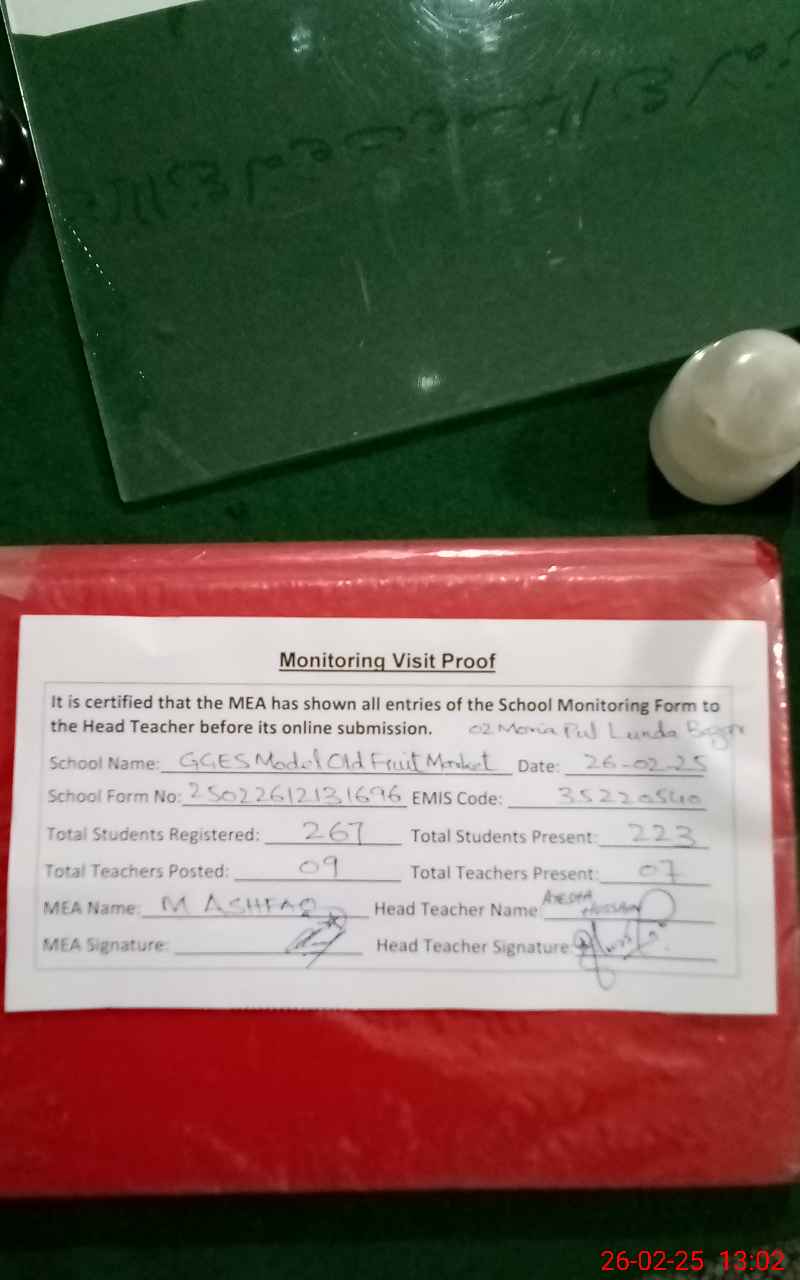 Monitoring Visit Proof
It is certified that the MEA has shown all entries of the School Monitoring Form to
the Head Teacher before its online submission. 02 Moria Pul Lunda
School Name: GGES Model Old Fruit Market Date: 26-02-25
School Form No: 25022612131696 EMIS Code: 35220540
Total Students Registered: 267 Total Students Present: 223
Total Teachers Posted: 09 Total Teachers Present: 07
MEA Name: M ASHFAQ Head Teacher Name: HUSSAIN
MEA Signature: Head Teacher Signature:
26-02-25 13:02